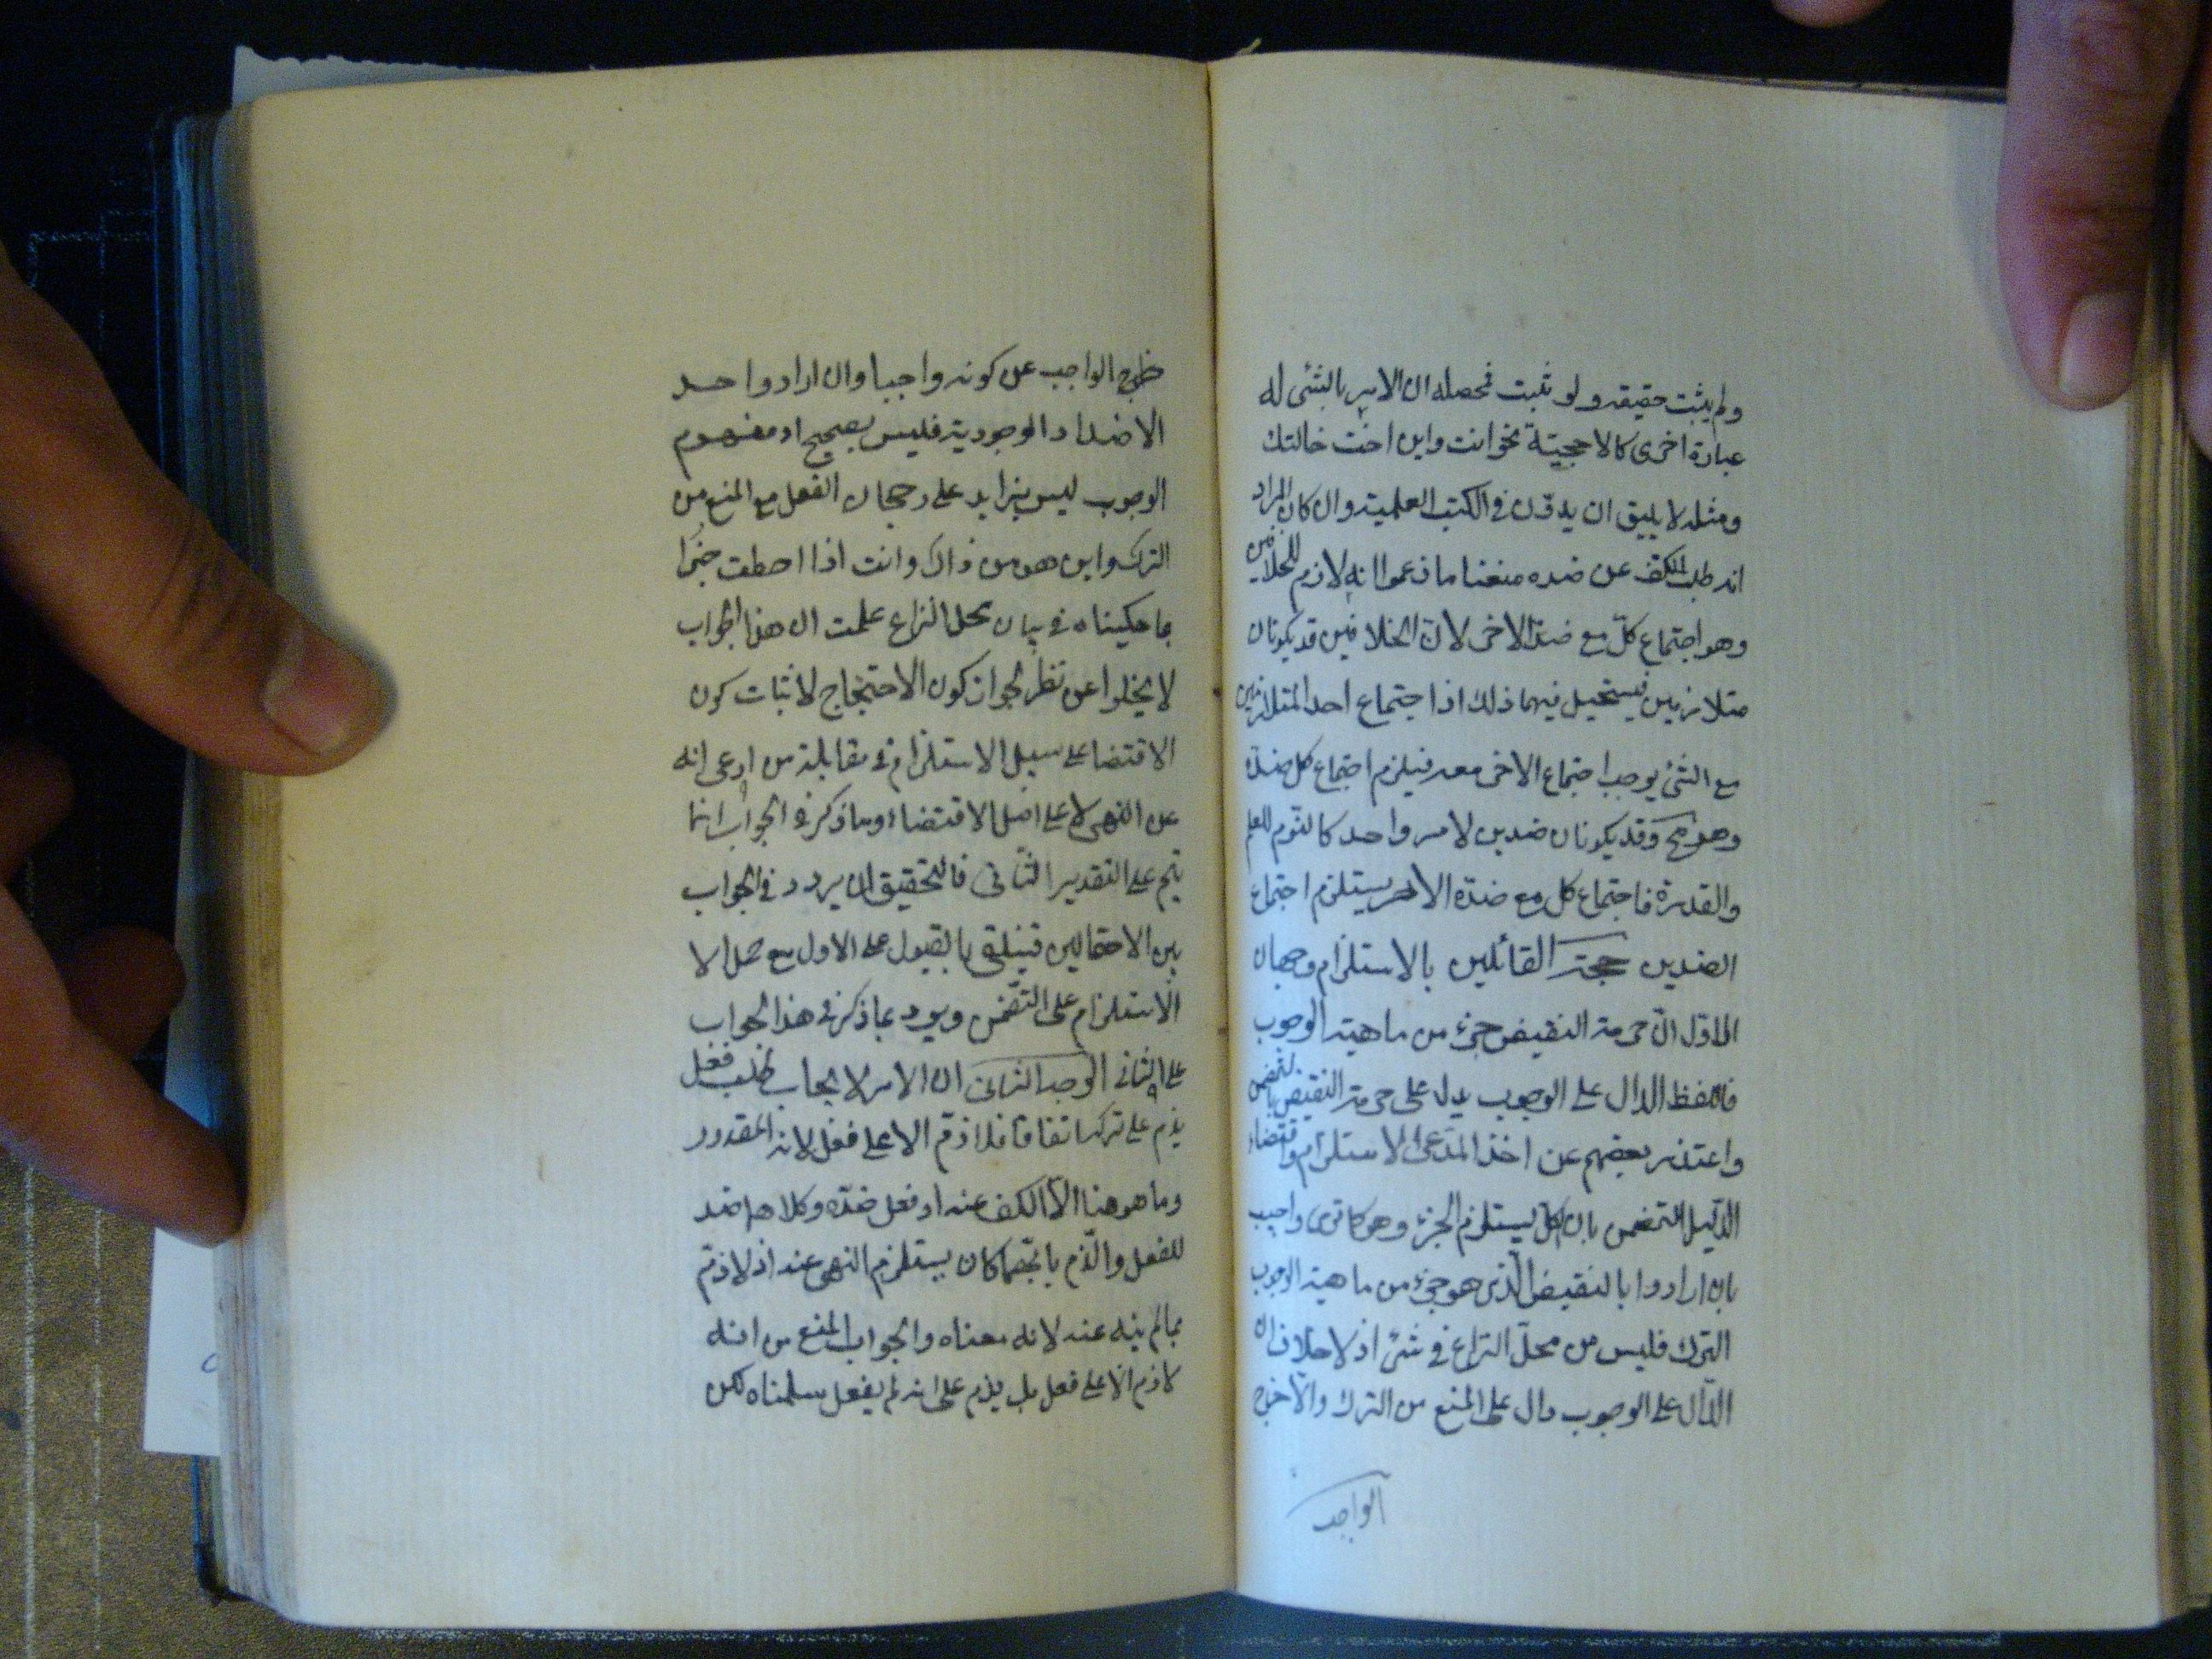 ولم يثبت حقيقه ولو ثبت فمحصله ان الامر بالشئ له
عبارة اخرى كالاحجية نحو انت وابن اخت خالتك
ومثله لا يليق ان يدون في الكتب العلمية وان كان المراد
انه طلب الكف عن ضده منعنا ما زعموا انه لازم للخلافين
وهو اجتماع كل مع ضد الاخر لان الخلافين قد يكونان
متلازمين فيستحيل فيهما ذلك اذا اجتماع احد المتلازمين
مع الشئ يوجب اجتماع الاخر معه فيلزم اجتماع كل ضده
وهو مح وقد يكونان ضدين لامر واحد كالنوم للعلم
والقدرة فاجتماع كل مع ضده الاخر يستلزم اجتماع
الضدين حجة القائلين بالاستلزام وجهان
الاول ان حرمة النقيض جزء من ماهية الوجوب
فاللفظ الدال على الوجوب يدل على حرمة النقيض بالتضمن
واعتذر بعضهم عن اخذ المدعى الاستلزام واقتضاء
الدليل التضمن بان الكل يستلزم الجزء وهو كما ترى واجيب
بان ارادوا بالنقيض الذى هو جزء من ماهية الوجوب
الترك فليس من محل النزاع في شئ اذ لا خلاف ان
الدال على الوجوب دال على المنع من الترك والا خرج
الواجب
خرج الواجب عن كونه واجبا وان اراد واحد
الاضداد الوجودية فليس بصحيح اذ مفهوم
الوجوب ليس بزايد على رجحان الفعل مع المنع من
الترك واين هو من ذاك وانت اذا احطت خبرا
بما حكيناه في بيان محل النزاع علمت ان هذا الجواب
لا يخلوا عن نظر لجواز كون الاحتجاج لاثبات كون
الاقتضا على سبيل الاستلزام في مقابلة من ادعى انه
عين النهى لا على اصل الاقتضا وما ذكر في الجواب انما
يتم على التقدير الثانى فالتحقيق ان يردد في الجواب
بين الاحتمالين فيتلقى بالقبول على الاول مع حمل الا
الاستلزام على التضمن ويرد بما ذكر في هذا الجواب
على الثانى الوجه الثانى ان الامر لايجاب طلب فعل
يذم على تركه اتفاقا فلا ذم الا على فعل لانه المقدور
وما هو هنا الا الكف عنه او فعل ضده وكلاهما ضد
للفعل والذم بايهما كان يستلزم النهى عنه اذ لا ذم
بما لم ينه عنه لانه معناه والجواب المنع من انه
لا ذم الا على فعل بل يذم على انه لم يفعل سلمناه لكن